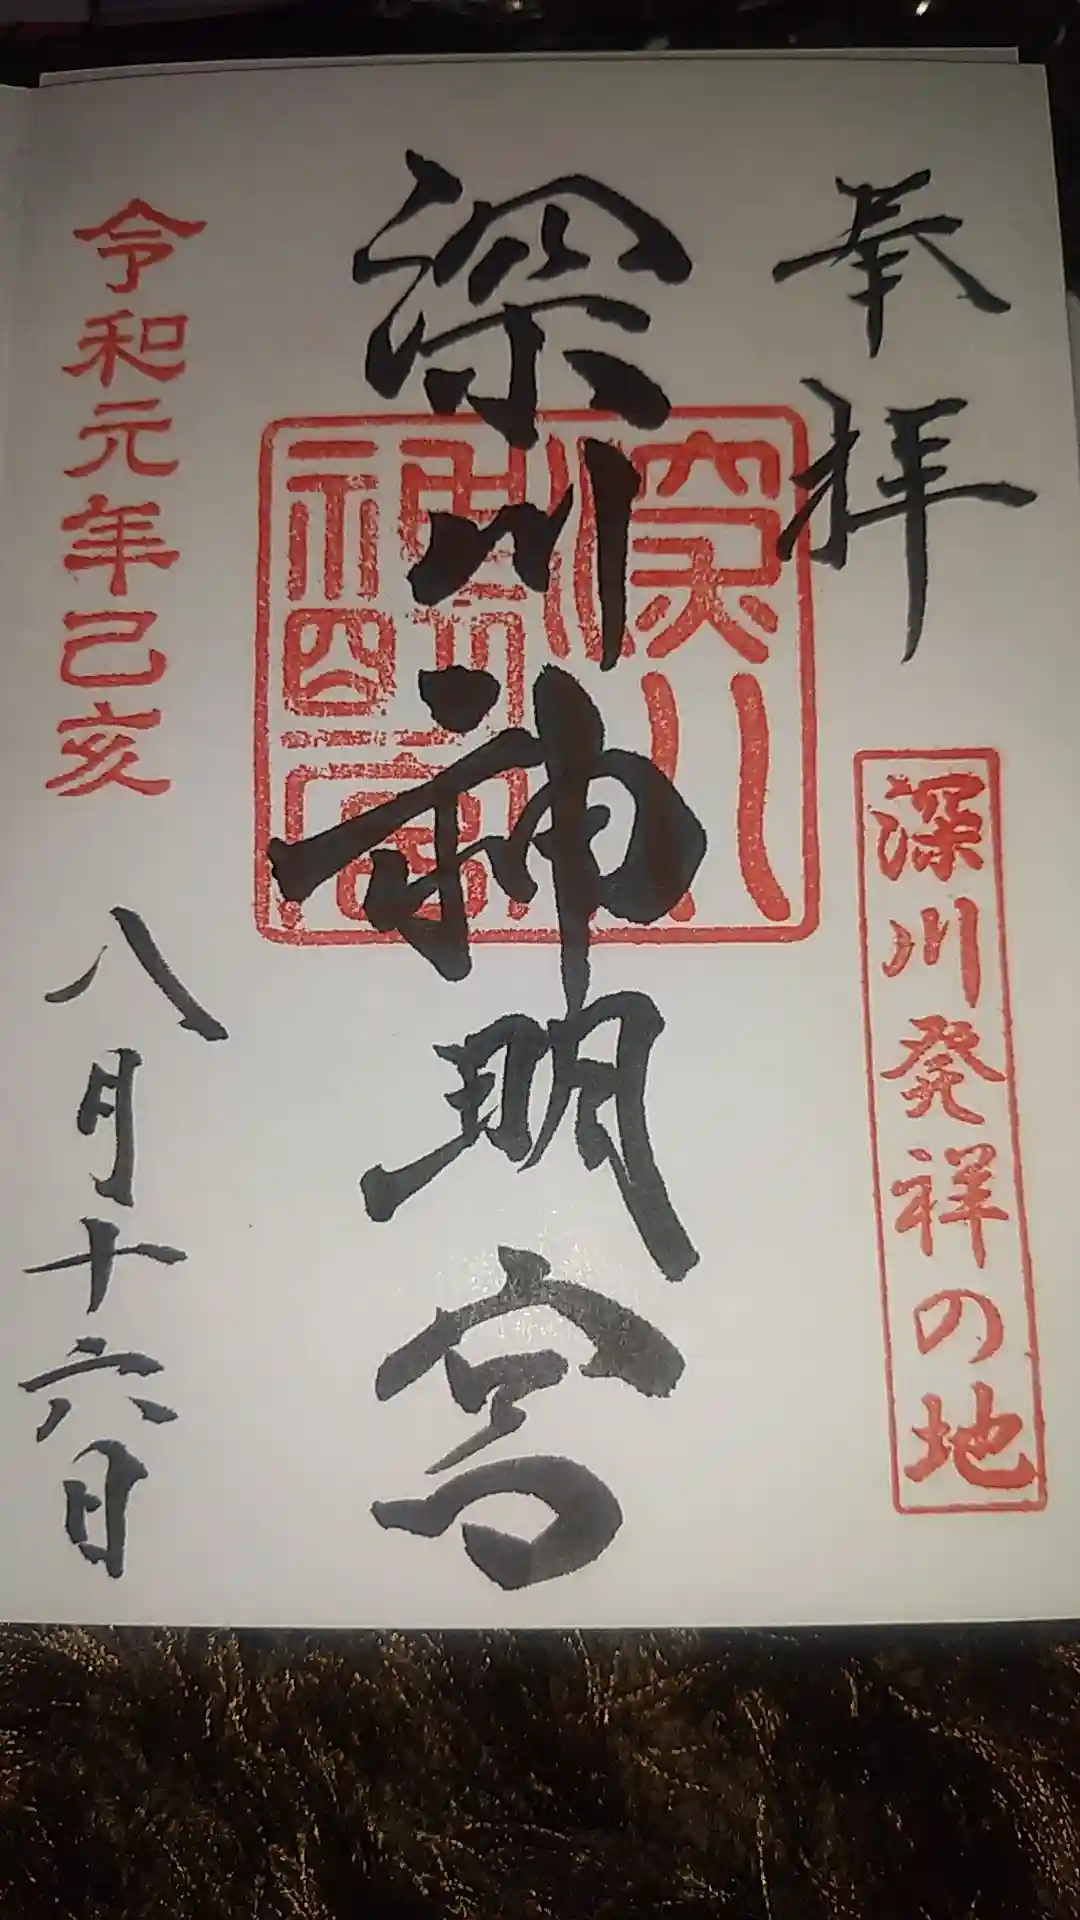 奉拝
深川発祥の地
深川神明宮
深川
神明宮
令和元年己亥
八月十六日